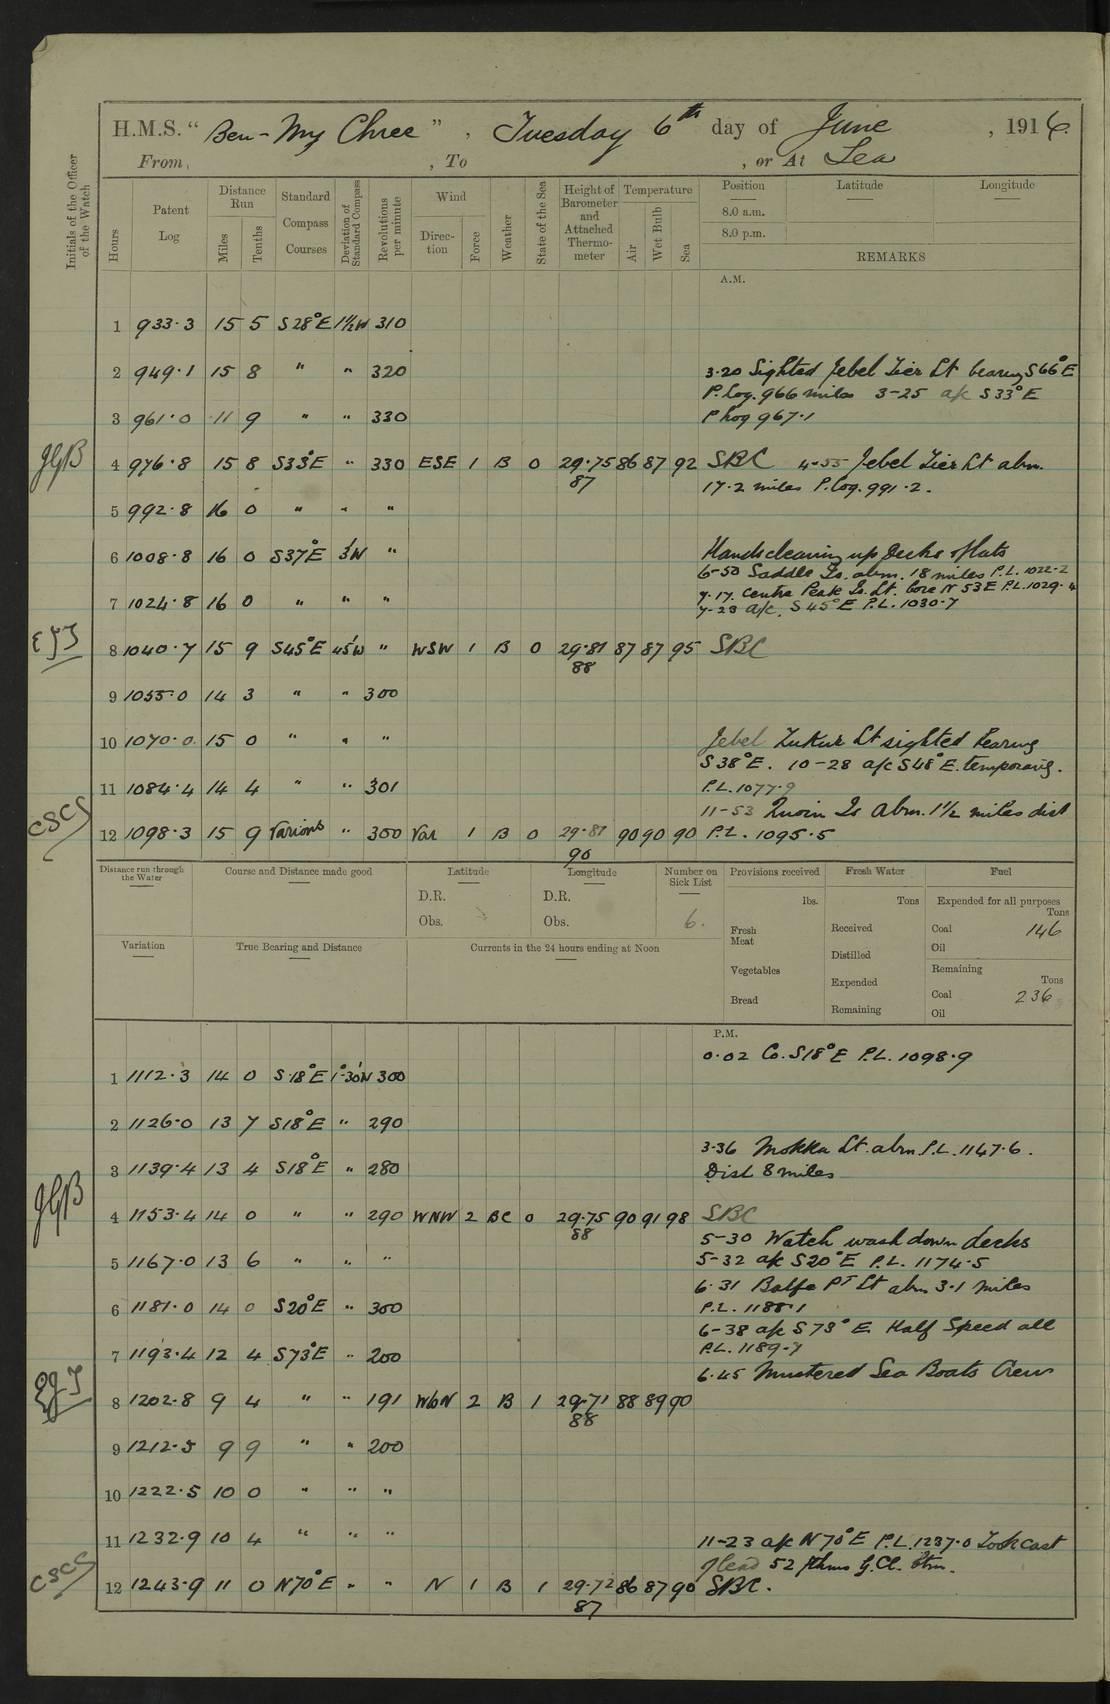 H.M.S. “ Ben-My Chree ” , Tuesday 6th day of June , 1916.
From , To , or At Sea
Initials of the Officer of the Watch
Hours
Patent Log
Distance Run
Miles
Tenths
Standard Compass Courses
Deviation of Standard Compass
Revolutions per minute
Wind
Direction
Force
Weather
State of the Sea
Height of Barometer and Attached Thermometer
Temperature
Air
Wet Bulb
Sea
Position Latitude Longitude
8.0 a.m.
8.0 p.m.
REMARKS
A.M.
1 933·3 15 5 S28°E 1½W 310
2 949·1 15 8 " " 320 3·20 Sighted Jebel Tier Lt bearing S66°E
P. Log. 966 miles 3-25 a/c S33°E
3 961·0 11 9 " " 330 P Log 967·1
JGB 4 976·8 15 8 S33°E " 330 ESE 1 B 0 29·75 86 87 92 SBC 4-55 Jebel Tier Lt abm.
87 17·2 miles P. Log. 991·2.
5 992·8 16 0 " " "
6 1008·8 16 0 S37°E 3'W " Hands cleaning up Decks & flats
6-50 Saddle Is. abm. 18 miles P.L. 1022·2
7 1024·8 16 0 " " " 7·17 Centre Peak Is. Lt. bore N 53 E P.L. 1029·4
7-23 a/c. S 45°E P.L. 1030·7
8 1040·7 15 9 S45°E 45'W " WSW 1 B 0 29·81 87 87 95 SBC
88
9 1055·0 14 3 " " 300
10 1070·0 15 0 " " " Jebel Zukur Lt sighted bearing
S 38°E. 10-28 a/c S48°E. temporary.
11 1084·4 14 4 " " 301 P.L. 1077·9
11-53 Quoin Is abm. 1½ miles dist
CSCS 12 1098·3 15 9 Various " 300 Var 1 B 0 29·87 90 90 90 P.L. 1095·5
90
Distance run through the Water
Course and Distance made good
Latitude
D.R.
Obs.
Longitude
D.R.
Obs.
Number on Sick List
6.
Provisions received
lbs.
Fresh Meat
Vegetables
Bread
Fresh Water
Tons
Received
Distilled
Expended
Remaining
Fuel
Expended for all purposes
Tons
Coal 146
Oil
Remaining
Tons
Coal 236
Oil
Variation
True Bearing and Distance
Currents in the 24 hours ending at Noon
P.M.
0·02 Co. S18°E P.L. 1098·9
1 1112·3 14 0 S·18°E 1°·30'W 300
2 1126·0 13 7 S18°E " 290
3·36 Mokka Lt. abm P.L. 1147·6.
3 1139·4 13 4 S18°E " 280 Dist 8 miles
JGB 4 1153·4 14 0 " " 290 WNW 2 BC 0 29·75 90 91 98 SBC
88 5-30 Watch wash down decks
5 1167·0 13 6 " " " 5-32 a/c S20°E P.L. 1174·5
6·31 Balfe Pt Lt abm 3·1 miles
6 1181·0 14 0 S20°E " 300 P.L. 1188·1
6-38 a/c S 73°E. Half Speed all
7 1193·4 12 4 S73°E " 200 P.L. 1189·7
6·45 Mustered Sea Boats Crew
8 1202·8 9 4 " " 191 WbN 2 B 1 29·71 88 89 90
88
9 1212·5 9 9 " " 200
10 1222·5 10 0 " " "
11 1232·9 10 4 " " " 11-23 a/c N 70°E P.L. 1237·0 Took cast
of lead 52 fthms
CSCS 12 1243·9 11 0 N70°E " " N 1 B 1 29·72 86 87 90 SBC.
87